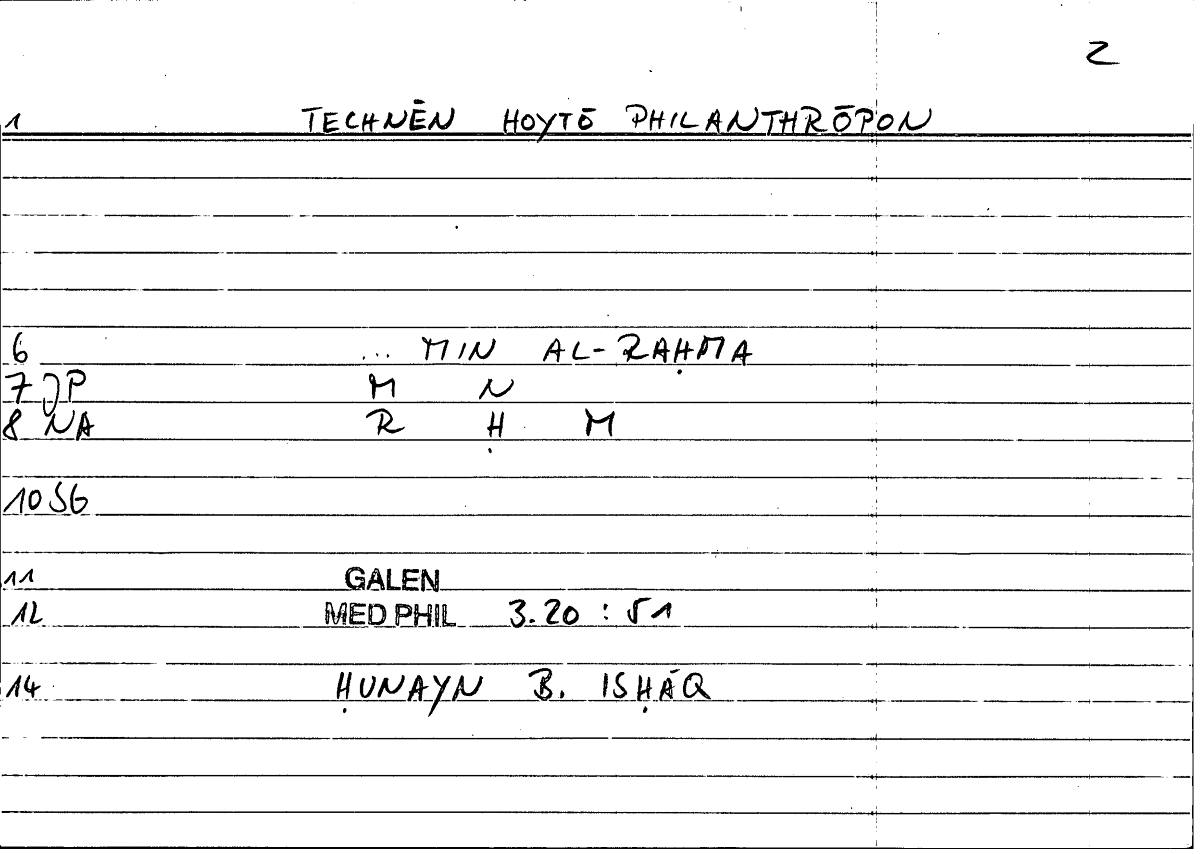 2
1 TECHNĒN HOYTŌ PHILANTHRŌPON
6 ... MIN AL-RAḤMA
7 JP M N
8 NA R Ḥ M
10 SG
11 GALEN
12 MED PHIL 3.20 : 51
14 ḤUNAYN B. ISḤĀQ